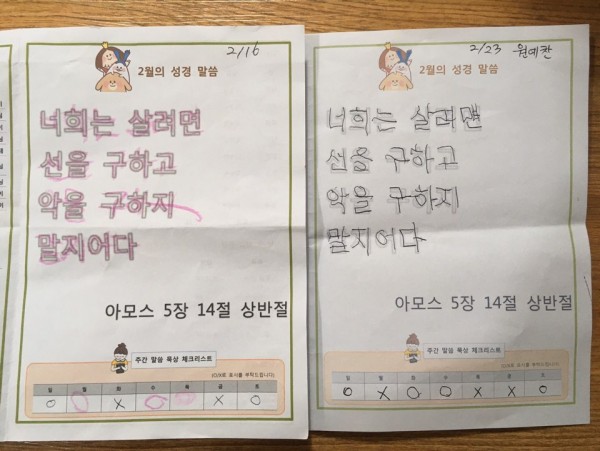 2/16
2월의 성경 말씀
너희는 살려면
선을 구하고
악을 구하지
말지어다
아모스 5장 14절 상반절
주간 말씀 묵상 체크리스트
(O/X로 표시를 부탁드립니다)
일 월 화 수 목 금 토
O O X O O X O
2/23 원예찬
2월의 성경 말씀
너희는 살려면
선을 구하고
악을 구하지
말지어다
아모스 5장 14절 상반절
주간 말씀 묵상 체크리스트
(O/X로 표시를 부탁드립니다)
일 월 화 수 목 금 토
O X O O X X O